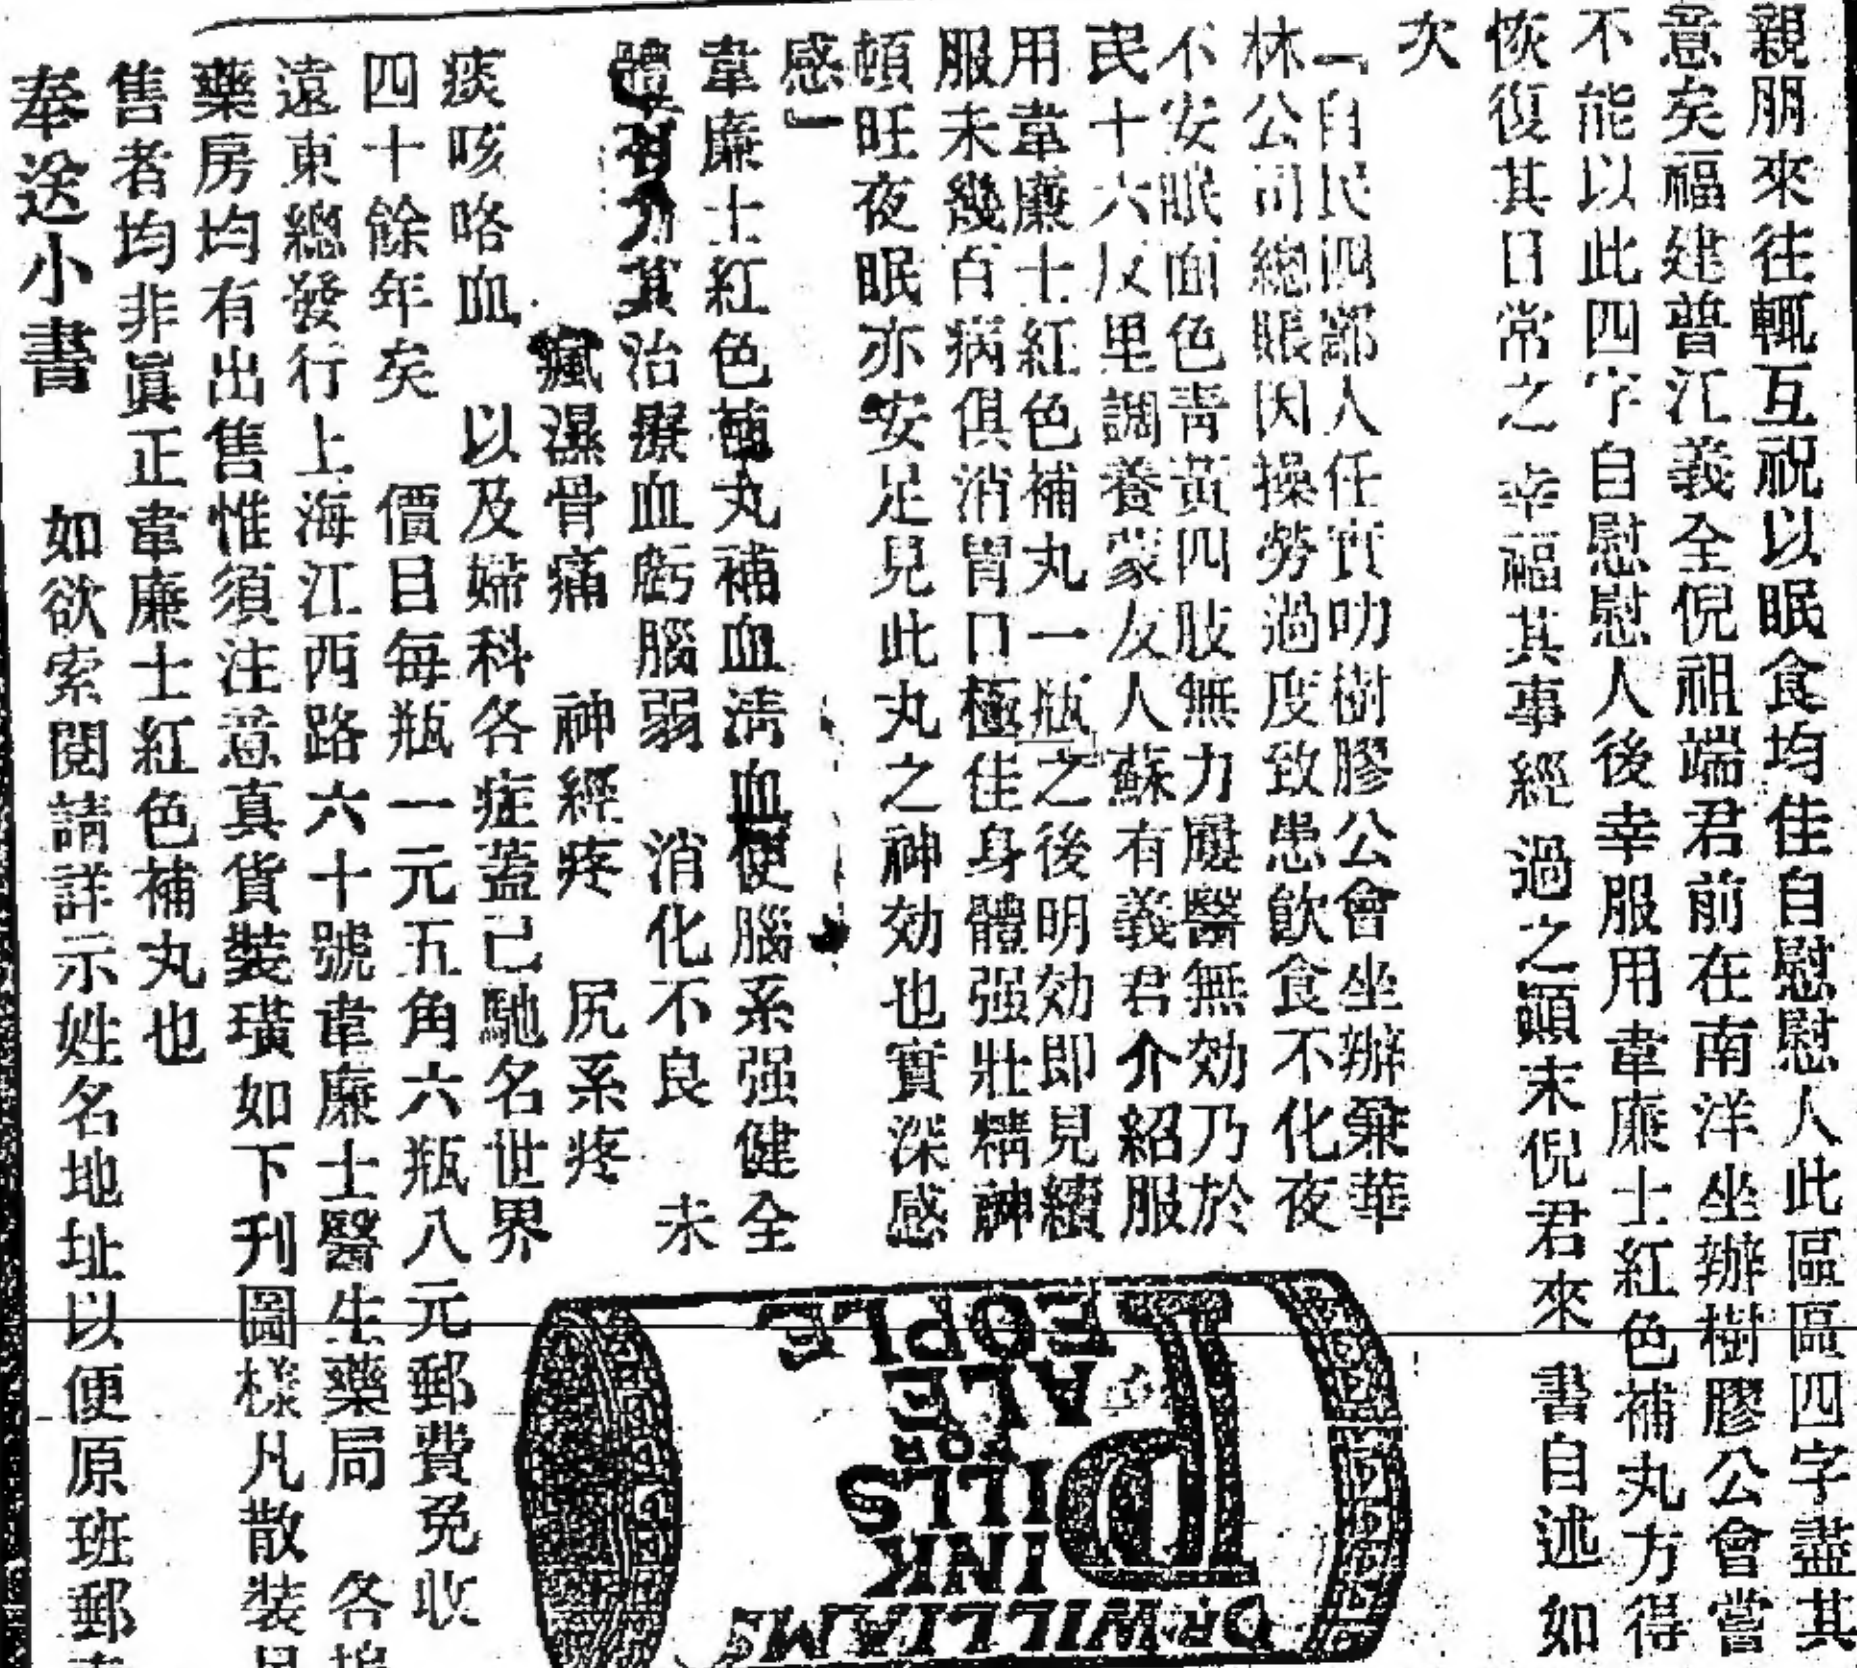 親朋來往輒互祝以眠食均佳自慰慰人此區區四字盡其
意矣福建晋江義全倪祖端君前在南洋坐辦樹膠公會嘗
不能以此四字自慰慰人後幸服用韋廉士紅色補丸方得
恢復其日常之幸福其事經過之顚末倪君來 書自述如
次
「自民四鄰人任實叻樹膠公會坐辦兼華
林公司總賬因操勞過度致患飮食不化夜
不安眠面色靑黃四肢無力屢醫無効乃於
民十六反里調養蒙友人蘇有義君介紹服
用韋廉士紅色補丸一瓶之後明効即見續
服未幾百病俱消胃口極佳身體强壯精神
頓旺夜眠亦安足見此丸之神効也實深感
感」
韋廉士紅色補丸補血淸血使腦系强健全
體有力其治療血虧腦弱 消化不良 未
瘋濕骨痛 神經疼 尻系疼
痰咳咯血 以及婦科各症蓋已馳名世界
四十餘年矣 價目每瓶一元五角六瓶八元郵費免收
遠東總發行上海江西路六十號韋廉士醫生藥局 各埠
藥房均有出售惟須注意真貨裝璜如下刋圖樣凡散裝
售者均非眞正韋廉士紅色補丸也
奉送小書 如欲索閱請詳示姓名地址以便原班郵
DR WILLIAMS
PINK
PILLS
FOR
PALE
PEOPLE